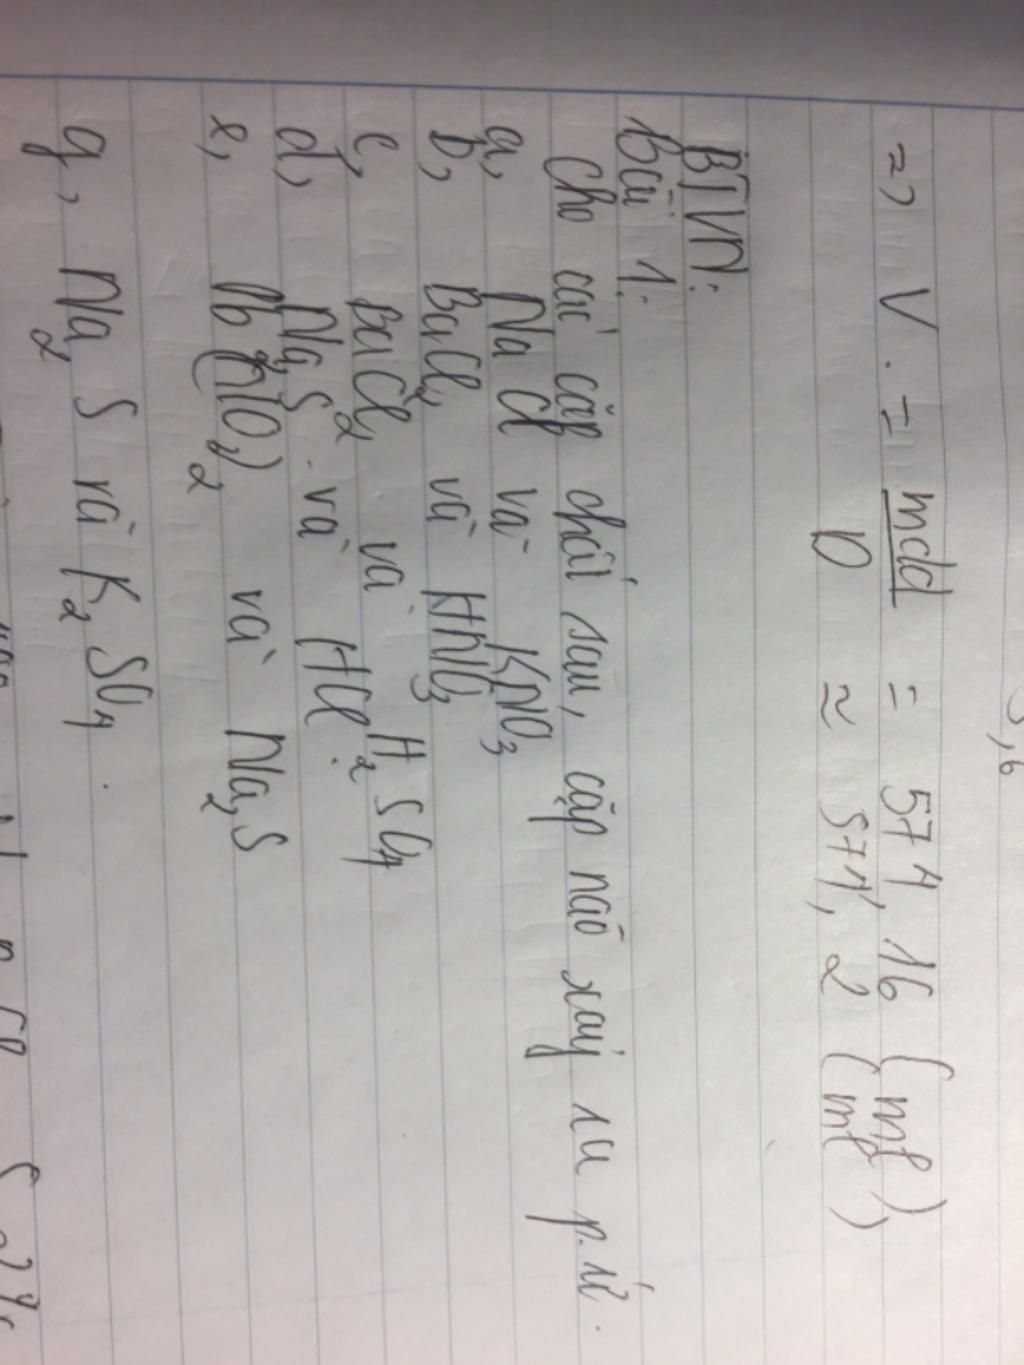 3,6
=> V. = mdd/D = 571,16 (ml)
≈ 571,2 (ml)
BTVN:
Bài 1:
Cho các cặp chất sau, cặp nào xảy ra p.ứ.
a, NaCl và KNO3
b, BaCl2 và HNO3
c, BaCl2 và H2SO4
d, Na2S và HCl
e, Pb(NO3)2 và Na2S
g, Na2S và K2SO4.